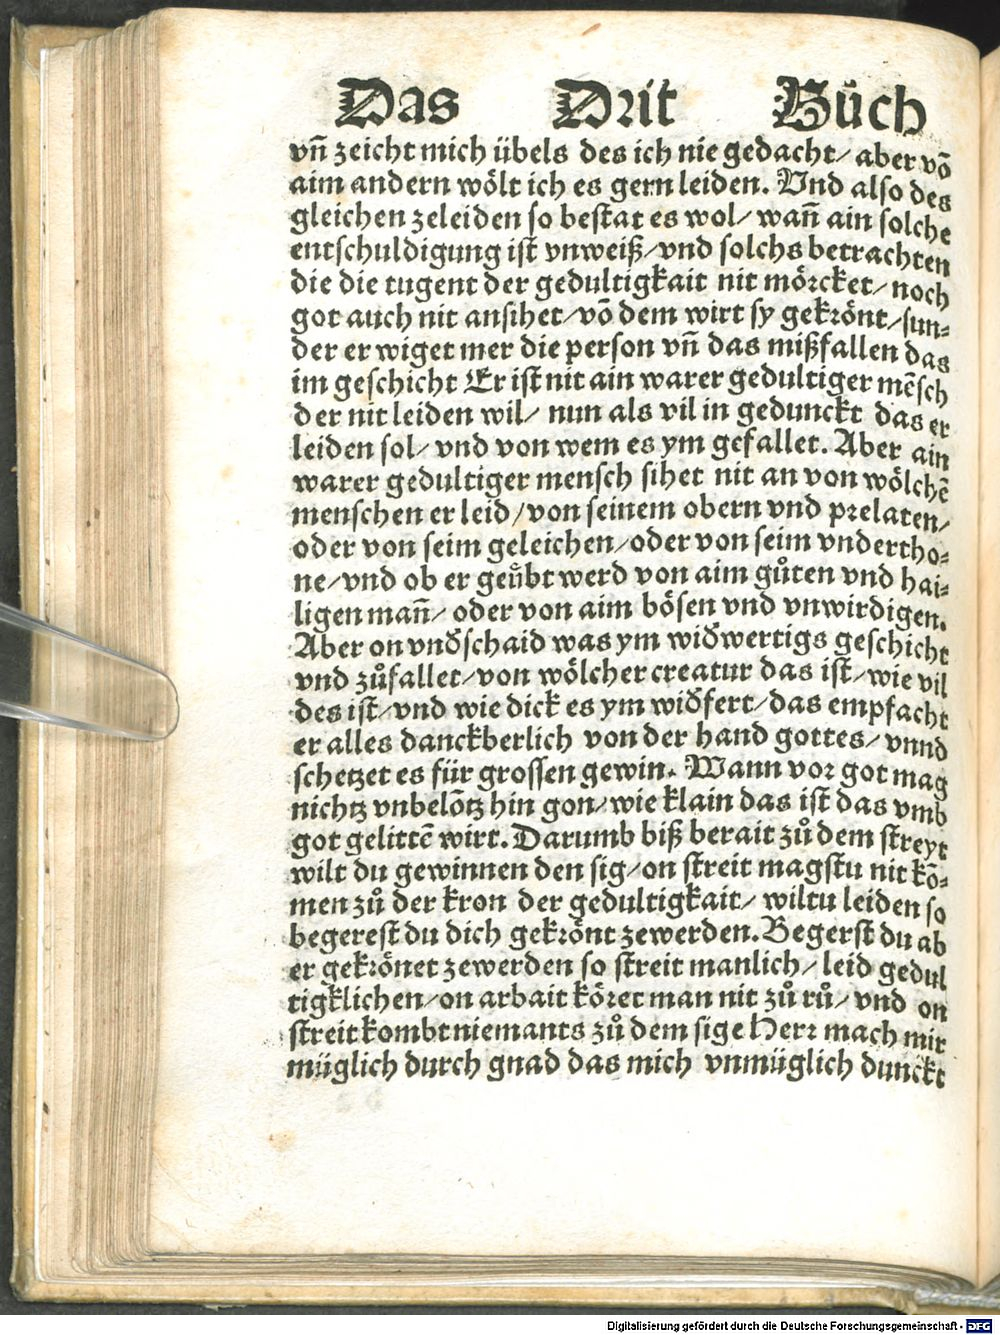 Das Drit Bůch
vñ zeicht mich übels des ich nie gedacht/ aber võ
aim andern wölt ich es gern leiden. Vnd also des
gleichen zeleiden so bestat es wol/ wañ ain solche
entschuldigung ist vnweiß/vnd solchs betrachten
die die tugent der gedultigkait nit mörcket/ noch
got auch nit ansihet/võ dem wirt sy gekrönt/sun⸗
der er wiget mer die person vñ das mißfallen das
im geschicht Er ist nit ain warer gedultiger mẽsch
der nit leiden wil/ nun als vil in gedunckt das er
leiden sol/ vnd von wem es ym gefallet. Aber ain
warer gedultiger mensch sihet nit an von wölchẽ
menschen er leid/von seinem obern vnd prelaten/
oder von seim geleichen/oder von seim vndertho⸗
ne/vnd ob er geu̍bt werd von aim gůten vnd hai⸗
ligen mañ/ oder von aim bösen vnd vnwirdigen.
Aber on vnđschaid was ym wiđwertigs geschicht
vnd zůfallet/von wölcher creatur das ist/wie vil
des ist/vnd wie dick es ym wiđfert/das empfacht
er alles danckberlich von der hand gottes/ vnnd
schetzet es für grossen gewin. Wann vor got mag
nichtz vnbelõtz hin gon/wie klain das ist das vmb
got gelittẽ wirt. Darumb biß berait zů dem streyt
wilt du gewinnen den sig/on streit magstu nit kõ⸗
men zů der kron der gedultigkait/ wiltu leiden so
begerest du dich gekrönt zewerden. Begerst du ab
er gekrönet zewerden so streit manlich/ leid gedul
tigklichen/on arbait köret man nit zů rů/ vnd on
streit kombt niemants zů dem sige Herr mach mir
müglich durch gnad das mich vnmüglich dunckt
Digitalisierung gefördert durch die Deutsche Forschungsgemeinschaft - DFG